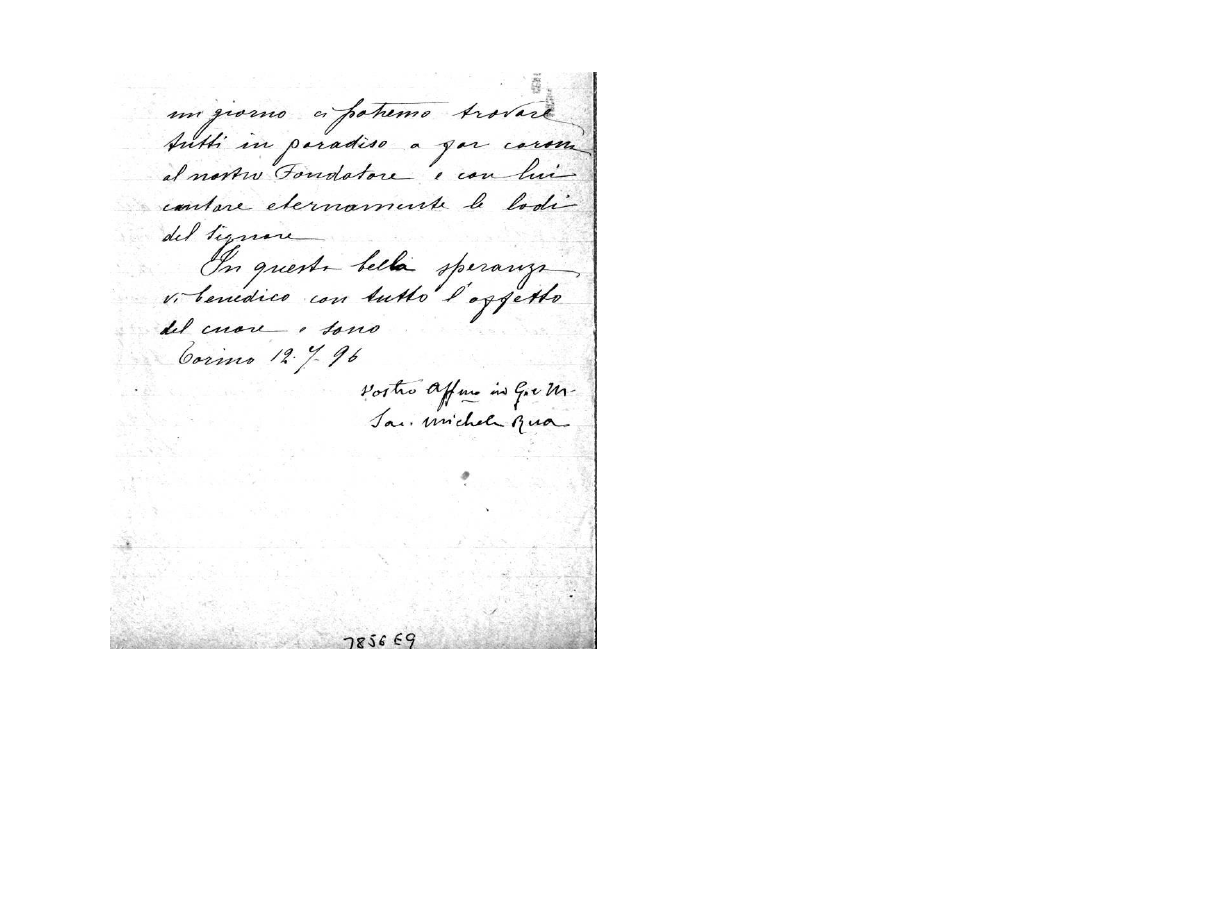 un giorno ci potremo trovare
tutti in paradiso a far corona
al nostro Fondatore e con lui
cantare eternamente le lodi
del Signore
In questa bella speranza
vi benedico con tutto l'affetto
del cuore e sono
Torino 12. 7. 96
Vostro Affmo in G. e M.
Sac. Michele Rua
7856 E9